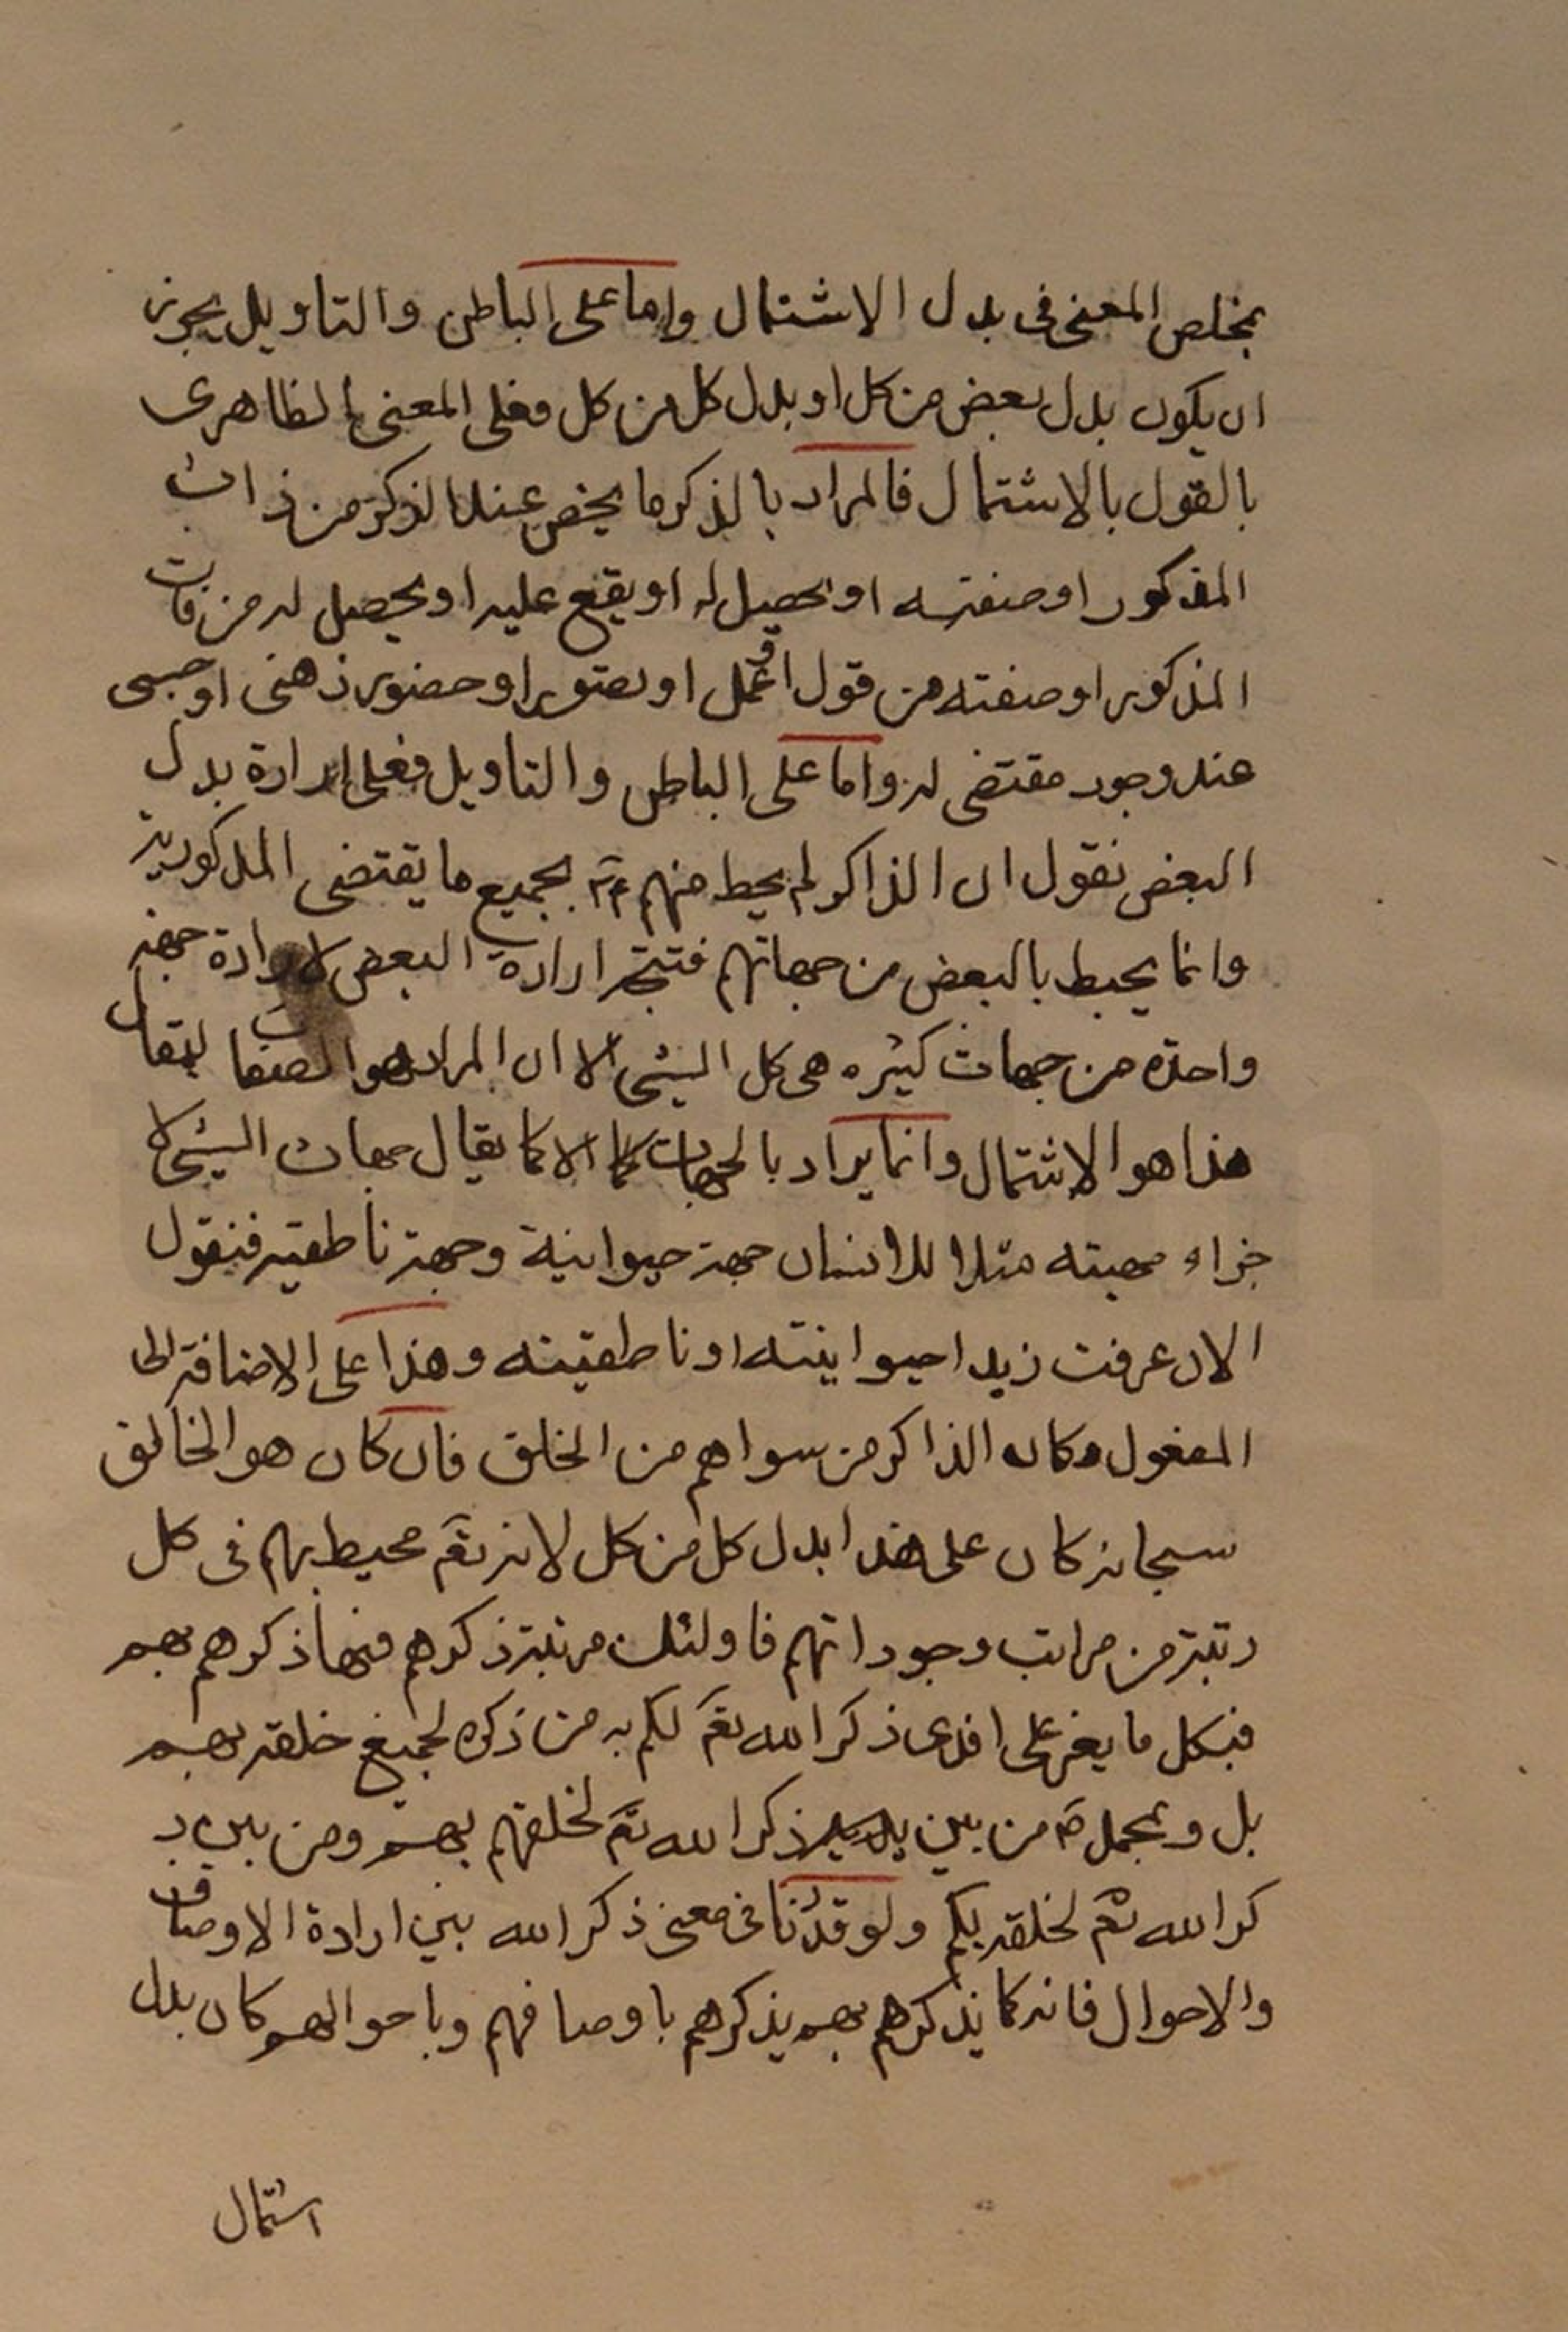 يخلص المعنى فى بدل الاشتمال واما على الباطن والتاويل يجوز
ان يكون بدل بعض من كل او بدل كل من كل فعلى المعنى الظاهرى
بالقول بالاشتمال فالمراد بالذكر ما يخص عند الذكر من ذات
المذكور او صفته او يحصل له او يقع عليه او يحصل له من ذات
المذكور او صفته من قول او عمل او تصور او حضور ذهنى او حسى
عند وجود مقتضى له واما على الباطن والتاويل فعلى ارادة بدل
البعض نقول ان الذاكر لم يحط منهم ع بجميع ما يقتضى المذكورية
وانما يحيط بالبعض من جهاتهم فتتجه ارادة البعض لارادة جهة
واحدة من جهات كثيره هى كل الشئ الا ان المراد هو الصفات ليقال
هذا هو الاشتمال وانما يراد بالجهات كما الا كما يقال جهات الشئ لا
جزاء مهيته مثلا للانسان جهة حيوانية وجهة ناطقية فنقول
الان عرفت زيدا حيوانيته او ناطقيته وهذا على الاضافة الى
المفعول وكان الذاكر من سواهم من الخلق فان كان هو الخالق
سبحانه كان على هذا بدل كل من كل لانه تع محيط بهم فى كل
رتبة من مراتب وجوداتهم فاولئك مرتبة ذكرهم فيها ذكرهم بهم
فبكل ما يعز على افدى ذكر الله تع لكم به من ذكره لجميع خلقه بهم
بل وبمجمله من بين ذكر الله تع لخلقهم بهم ومن بين ذ
كر الله تع لخلقه بكم ولو قدرنا فى معنى ذكر الله بين ارادة الاوصاف
والاحوال فانه كما يذكرهم بهم يذكرهم باوصافهم وباحوالهم كان بدل
اشتمال